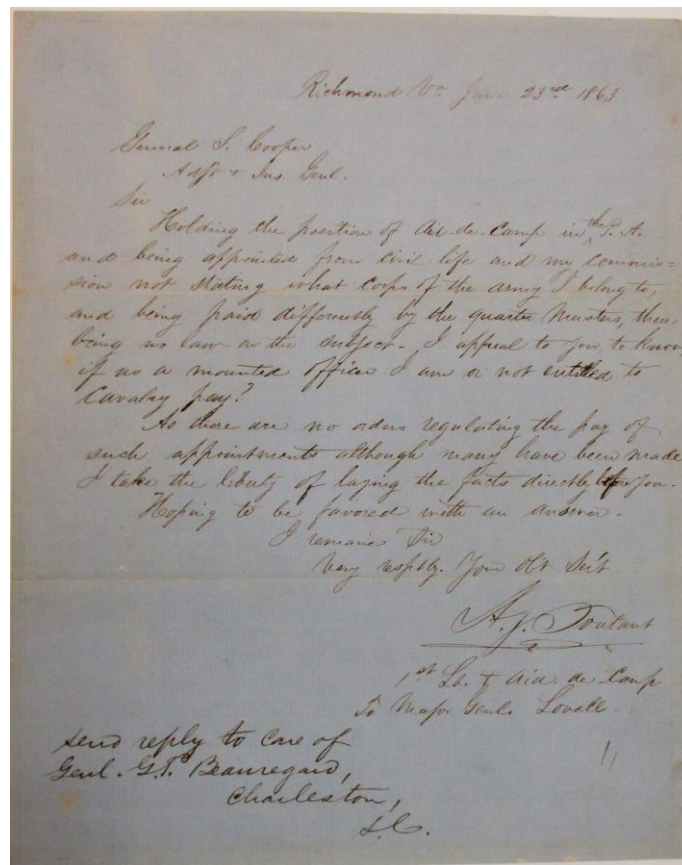 Richmond Va June 23rd 1863
General S. Cooper
Adjt & Ins. Genl.
Sir
Holding the position of Aid-de-Camp in the P. A.
and being appointed from civil life and my commis-
sion not stating what corps of the army I belong to,
and being paid differently by the quarter Masters, there
being no law on the subject - I appeal to you to know,
if as a mounted officer I am or not entitled to
Cavalry pay?
As there are no orders regulating the pay of
such appointments although many have been made
I take the liberty of laying the facts directly before you -
Hoping to be favored with an answer -
I remain Sir
Very respfly. Your Obt Sevt
A. J. Toutant
1st Lt. & Aid-de-Camp
To Major Genl. Lovell -
send reply to care of
Genl. G.T. Beauregard,
Charleston,
S.C.